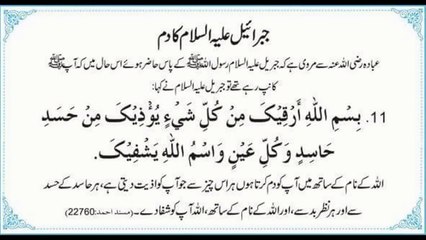 جبرائیل علیہ السلام کا دم
عبادہ رضی اللہ عنہ سے مروی ہے کہ جبریل علیہ السلام رسول اللہ ﷺ کے پاس حاضر ہوئے اس حال میں کہ آپ ﷺ
کانپ رہے تھے تو جبریل علیہ السلام نے کہا:
11. بِسْمِ اللهِ أَرْقِيْکَ مِنْ كُلِّ شَيْءٍ يُؤْذِيْکَ مِنْ حَسَدِ
حَاسِدٍ وَكُلِّ عَيْنٍ وَاسْمُ اللهِ يَشْفِيْکَ.
اللہ کے نام کے ساتھ میں آپ کو دم کرتا ہوں ہر اس چیز سے جو آپ کو اذیت دیتی ہے، ہر حاسد کے حسد
سے اور ہر نظر بد سے، اور اللہ کے نام کے ساتھ، اللہ آپ کو شفا دے۔ (مسند احمد: 22760)